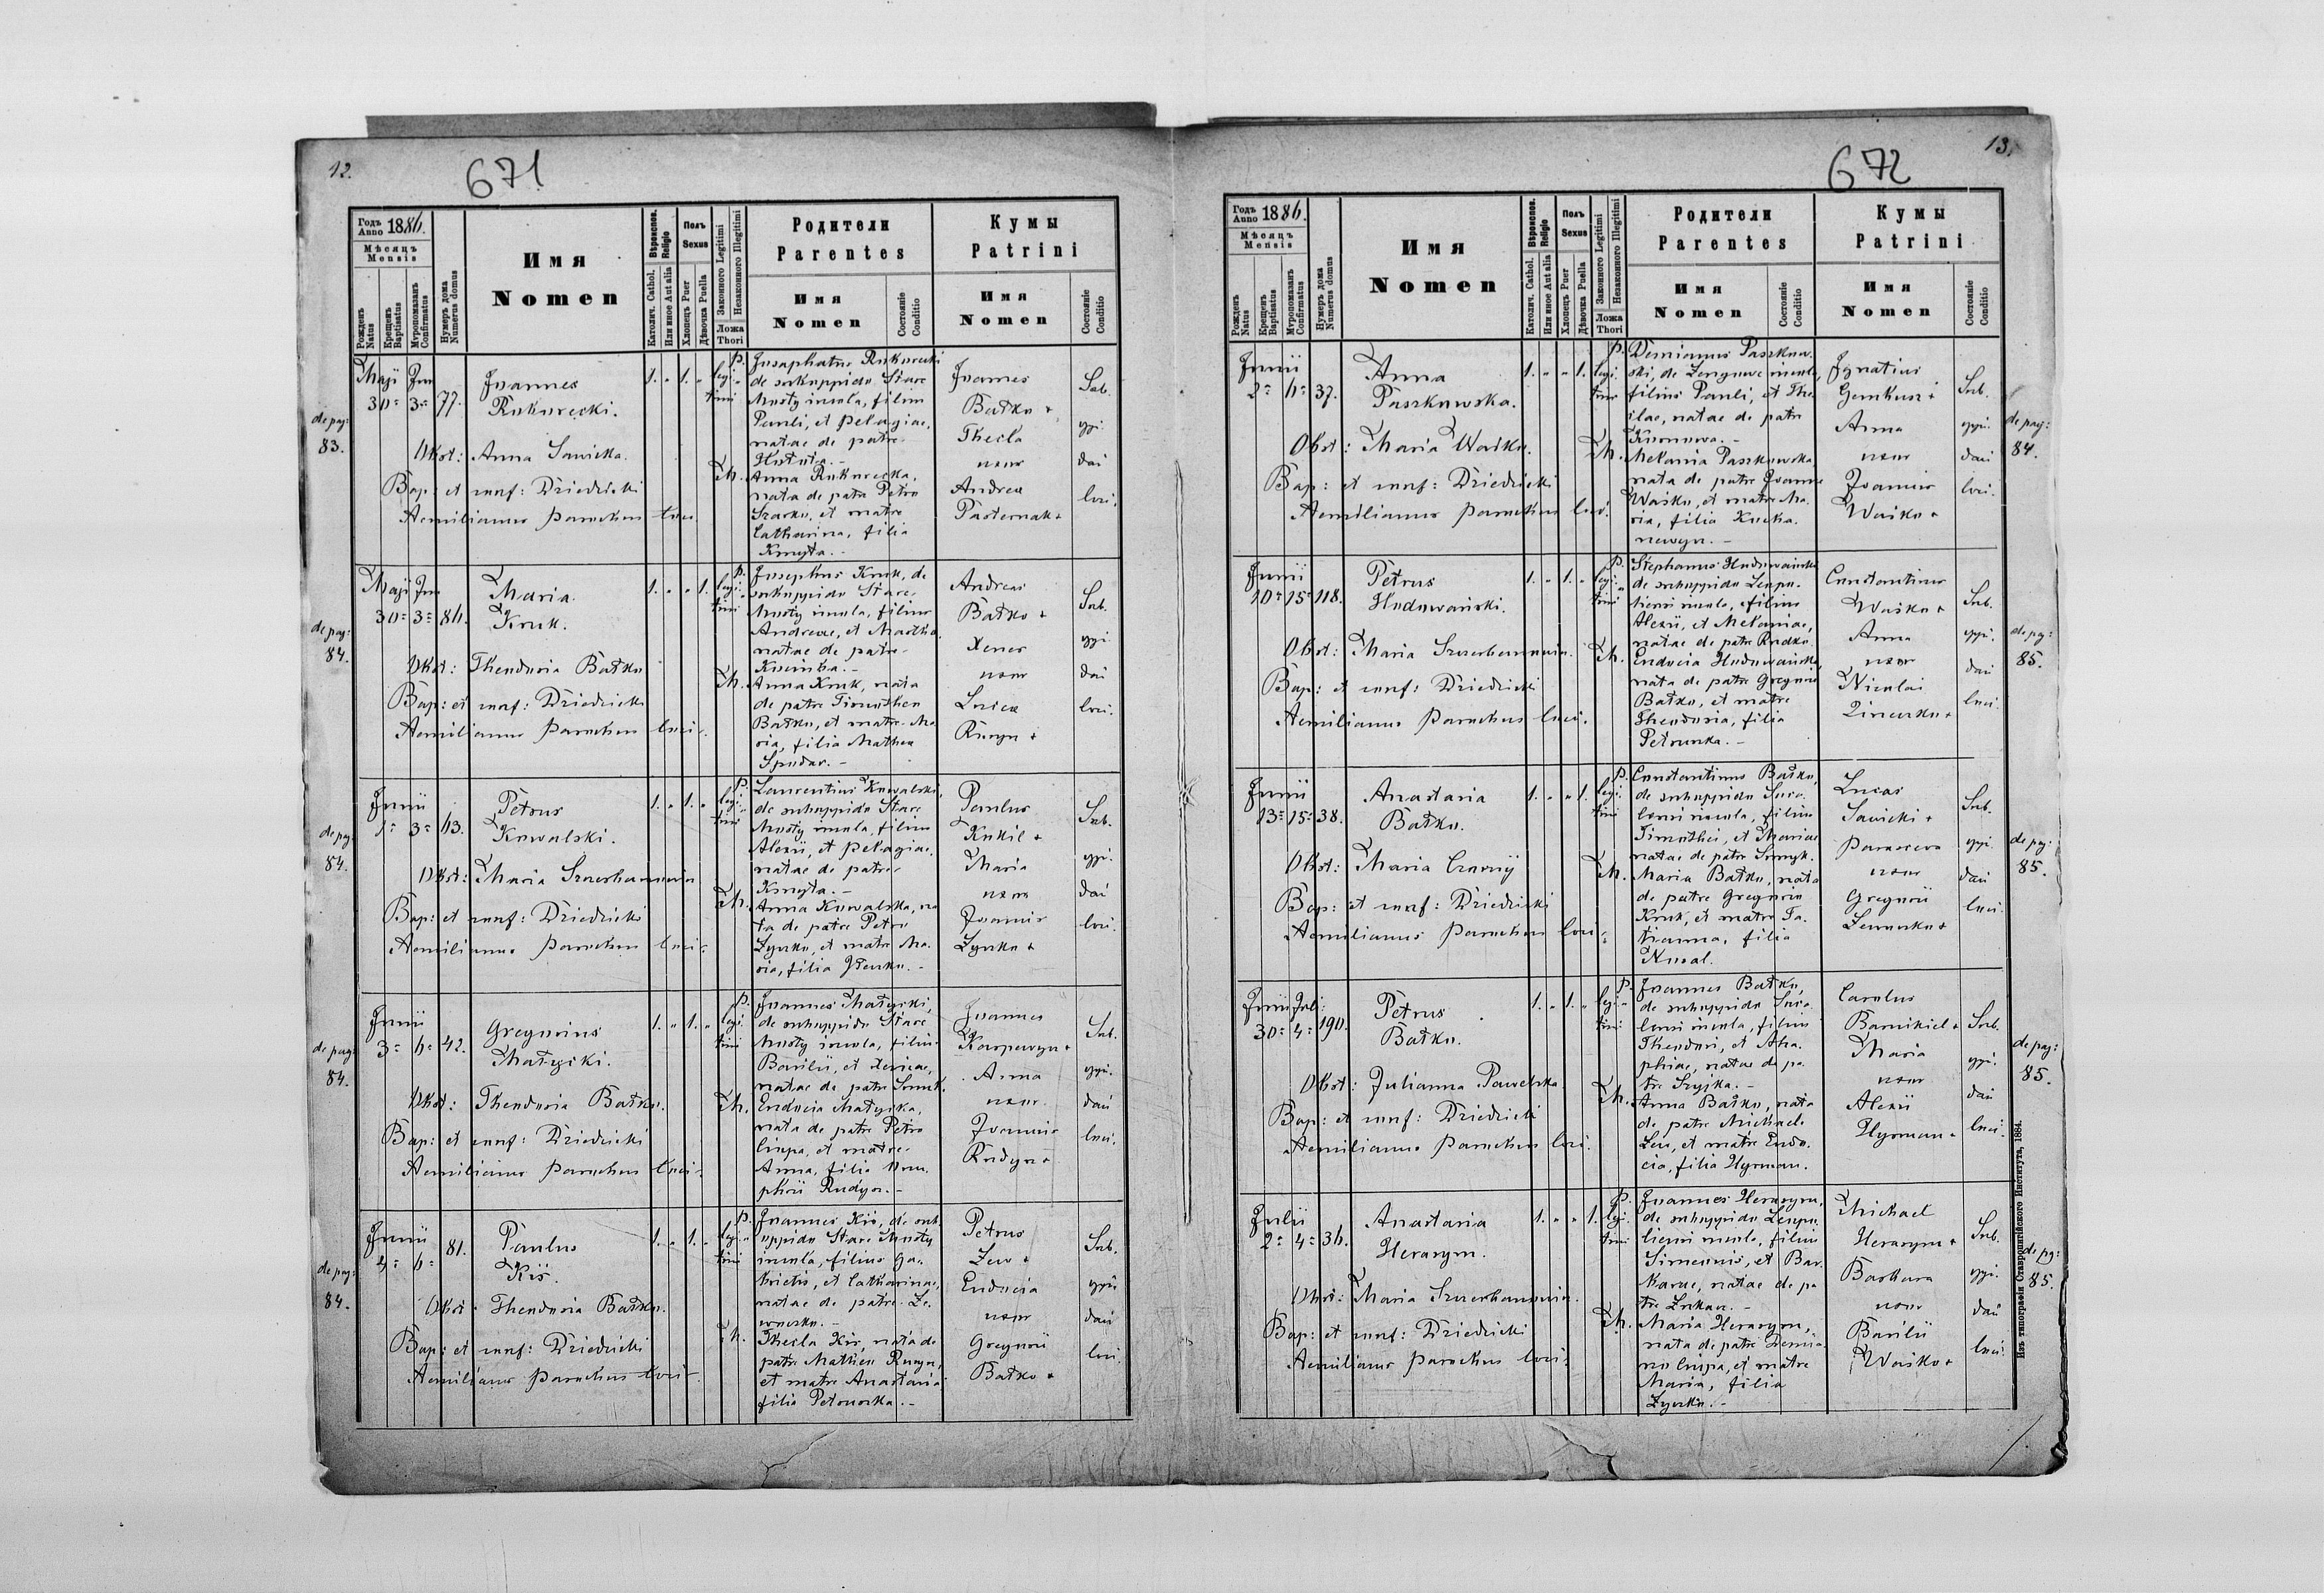 12.
671
Годъ Anno 1886.
Мѣсяцъ
Mensis
Рожденъ Natus
Крещенъ Baptisatus
Муропомазанъ Confirmatus
Нумеръ дома Numerus domus
Имя
Nomen
Вѣроиспов. Religio
Католич. Cathol.
Или иное Aut alia
Полъ
Sexus
Хлопецъ Puer
Дѣвочка Puella
Законного Legitimi
Незаконного Illegitimi
Ложа
Thori
Родители
Parentes
Имя
Nomen
Состоянiе Conditio
Кумы
Patrini
Имя
Nomen
Состоянiе Conditio
de pag:
83.
Maji Jun
30 3 77.
Joannes
Rokurecki.
Obst: Anna Sawicka.
Bap: et conf: Dziedzicki
Aemilianus parochus loci.
1. „ 1. „ legi
timi
p. Josaphatus Rokurecki
de suboppido Stare
Miasty incola, filius
Pauli, et Pelagiae,
natae de patre
Th. Anna Rokurecka,
nata de patre Petro
Szarko, et matre
Catharina, filia
Kmyta. -
Joannes
Batko +
Thecla
uxor
Andrea
Pasternak +
Sub
oppi
dani
loci.
de pag:
84.
Maji Jun
30 3 86.
Maria
Kruk.
Obst: Theodosia Batko
Bap: et conf: Dziedzicki
Aemilianus parochus loci.
1. „ „ 1. legi
timi
p. Josephus Kruk, de
suboppido Stare
Miasty incola, filius
Andreae, et Martha
natae de patre
Th. Anna Kruk, nata
de patre Timotheo
Batko, et matre Ma
ria, filia Mathea
Spodar. -
Andreas
Batko +
Xenes
uxor
Lucas
Sub.
oppi
dani
loci.
de pag:
84.
Junii
1 3 43.
Petrus
Kowalski.
Obst: Maria Szczerbanowicz
Bap: et conf: Dziedzicki
Aemilianus parochus loci.
1. „ 1. „ legi
timi
p. Laurentius Kowalski,
de suboppido Stare
Miasty incola, filius
Alexii, et Pelagiae,
natae de patre
Kmyta. -
Th. Anna Kowalska, na
ta de patre Petro
Zyszko, et matre Ma
ria, filia
Paulus
Kukil +
Maria
uxor
Joannis
Zyszko +
Sub.
oppi.
dani
loci.
de pag:
84.
Junii
3 6 42.
Gregorius
Matycki.
Obst: Theodosia Batko.
Bap: et conf: Dziedzicki
Aemilianus parochus loci.
1. „ 1. „ legi
timi
p. Joannes Matycki,
de suboppido Stare
Miasty incola, filius
Basilii, et
natae de patre Smuk.
Th. Eudocia Matycka,
nata de patre Petro
Ciupa, et matre
Anna, filia Onu
phrii Rudyn. -
Joannes
Karpowyn +
Anna
uxor
Joannis
Rudyn +
Sub.
oppi.
dani
loci.
de pag:
84.
Junii
4 6 81.
Paulus
Kis.
Obst: Theodosia Batko.
Bap: et conf: Dziedzicki
Aemilianus parochus loci.
1. „ 1. „ legi
timi
p. Joannes Kis, de sub
oppido Stare Miasty
incola, filius Ga
brielis, et Catharinae,
natae de patre
Th. Thecla Kis, nata de
patre Matheo
et matre Anastasia
filia Petrouska. -
Petrus
Zew +
Eudocia
uxor
Gregorii
Batko +
Sub.
oppi
dani
loci.
13.
672
Годъ Anno 1886.
Мѣсяцъ
Mensis
Рожденъ Natus
Крещенъ Baptisatus
Муропомазанъ Confirmatus
Нумеръ дома Numerus domus
Имя
Nomen
Вѣроиспов. Religio
Католич. Cathol.
Или иное Aut alia
Полъ
Sexus
Хлопецъ Puer
Дѣвочка Puella
Законного Legitimi
Незаконного Illegitimi
Ложа
Thori
Родители
Parentes
Имя
Nomen
Состоянiе Conditio
Кумы
Patrini
Имя
Nomen
Состоянiе Conditio
Junii
2 6 37.
Anna
Paszkowska.
Obst: Maria Wasko.
Bap: et conf: Dziedzicki
Aemilianus parochus loci.
1. „ „ 1. legi
timi
p. Demianus Paszkow
ski, de
filius Pauli, et The
clae, natae de patre
Th. Melania Paszkowska,
nata de patre Joanne
Wasko, et matre Ma
ria, filia Kucha
newyn. -
Ignatius
Anna
uxor
Joannis
Wasko +
Sub.
oppi.
dani
loci.
de pag:
84.
Junii
10 15 118.
Petrus
Hudowański.
Obst: Maria Szczerbanowicz.
Bap: et conf: Dziedzicki
Aemilianus parochus loci.
1. „ 1. „ legi
timi
p. Stephanus Hudowański
de suboppido Leopo
liensi incola, filius
Alexii, et Melaniae,
natae de patre Rudko.
Th. Eudocia Hudowańska
nata de patre Gregorio
Batko, et matre
Theodosia, filia
Petrunka. -
Constantinus
Wasko +
Anna
uxor
Nicolai
Sub.
oppi.
dani
loci.
de pag:
85.
Junii
13 15 38.
Anastasia
Batko.
Obst: Maria Czornij
Bap: et conf: Dziedzicki
Aemilianus parochus loci.
1. „ „ 1. legi
timi
p. Constantinus Batko,
de suboppido
incola, filius
Timothei, et Mariae
natae de patre Smyk.
Th. Maria Batko, nata
de patre Gregorio
Kruk, et matre Ta
tianna, filia
Lucas
Sawicki +
Parasceva
uxor
Gregorii
Sub.
oppi.
dani
loci.
de pag:
85.
Junii Juli:
30 4 190.
Petrus
Batko.
Obst: Julianna Pawelska
Bap: et conf: Dziedzicki
Aemilianus parochus loci.
1. „ 1. „ legi
timi
p. Joannes Batko,
de suboppido
incola, filius
Theodori, et Aga
phiae, natae de pa
tre Szyjka. -
Th. Anna Batko, nata
de patre Michaele
Leu, et matre Eudo
cia, filia Hyrman.
Carolus
Maria
uxor
Alexii
Hyrman +
Sub.
oppi.
dani
loci.
de pag:
85.
Julii
2 4 36.
Anastasia
Herasym.
Obst: Maria Szczerbanowicz.
Bap: et conf: Dziedzicki
Aemilianus parochus loci.
1. „ „ 1. legi
timi
p. Joannes Herasym,
de suboppido Leopo
liensi incola, filius
Simeonis, et Bar
barae, natae de pa
tre
Th. Maria Herasym,
nata de patre Demia
no Ciupa, et matre
Maria, filia
Zyszko. -
Michael
Herasym +
Barbara
uxor
Basilii
Wasko +
Sub.
oppi.
dani
loci.
de pag:
85.
Изъ типографiи Ставропигiйского Института, 1884.